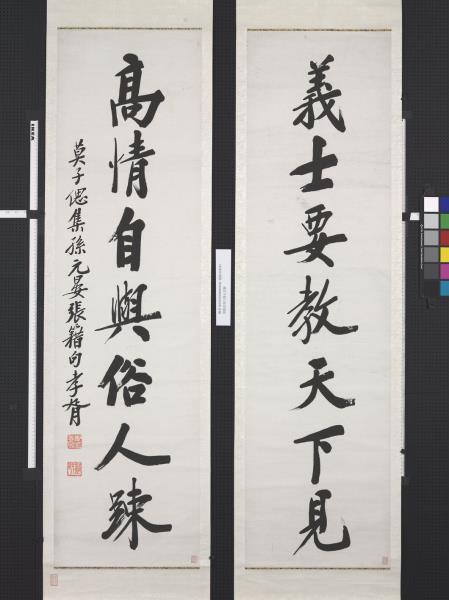 義士要教天下見
高情自與俗人疎
莫子偲集孫元晏張籍句孝胥